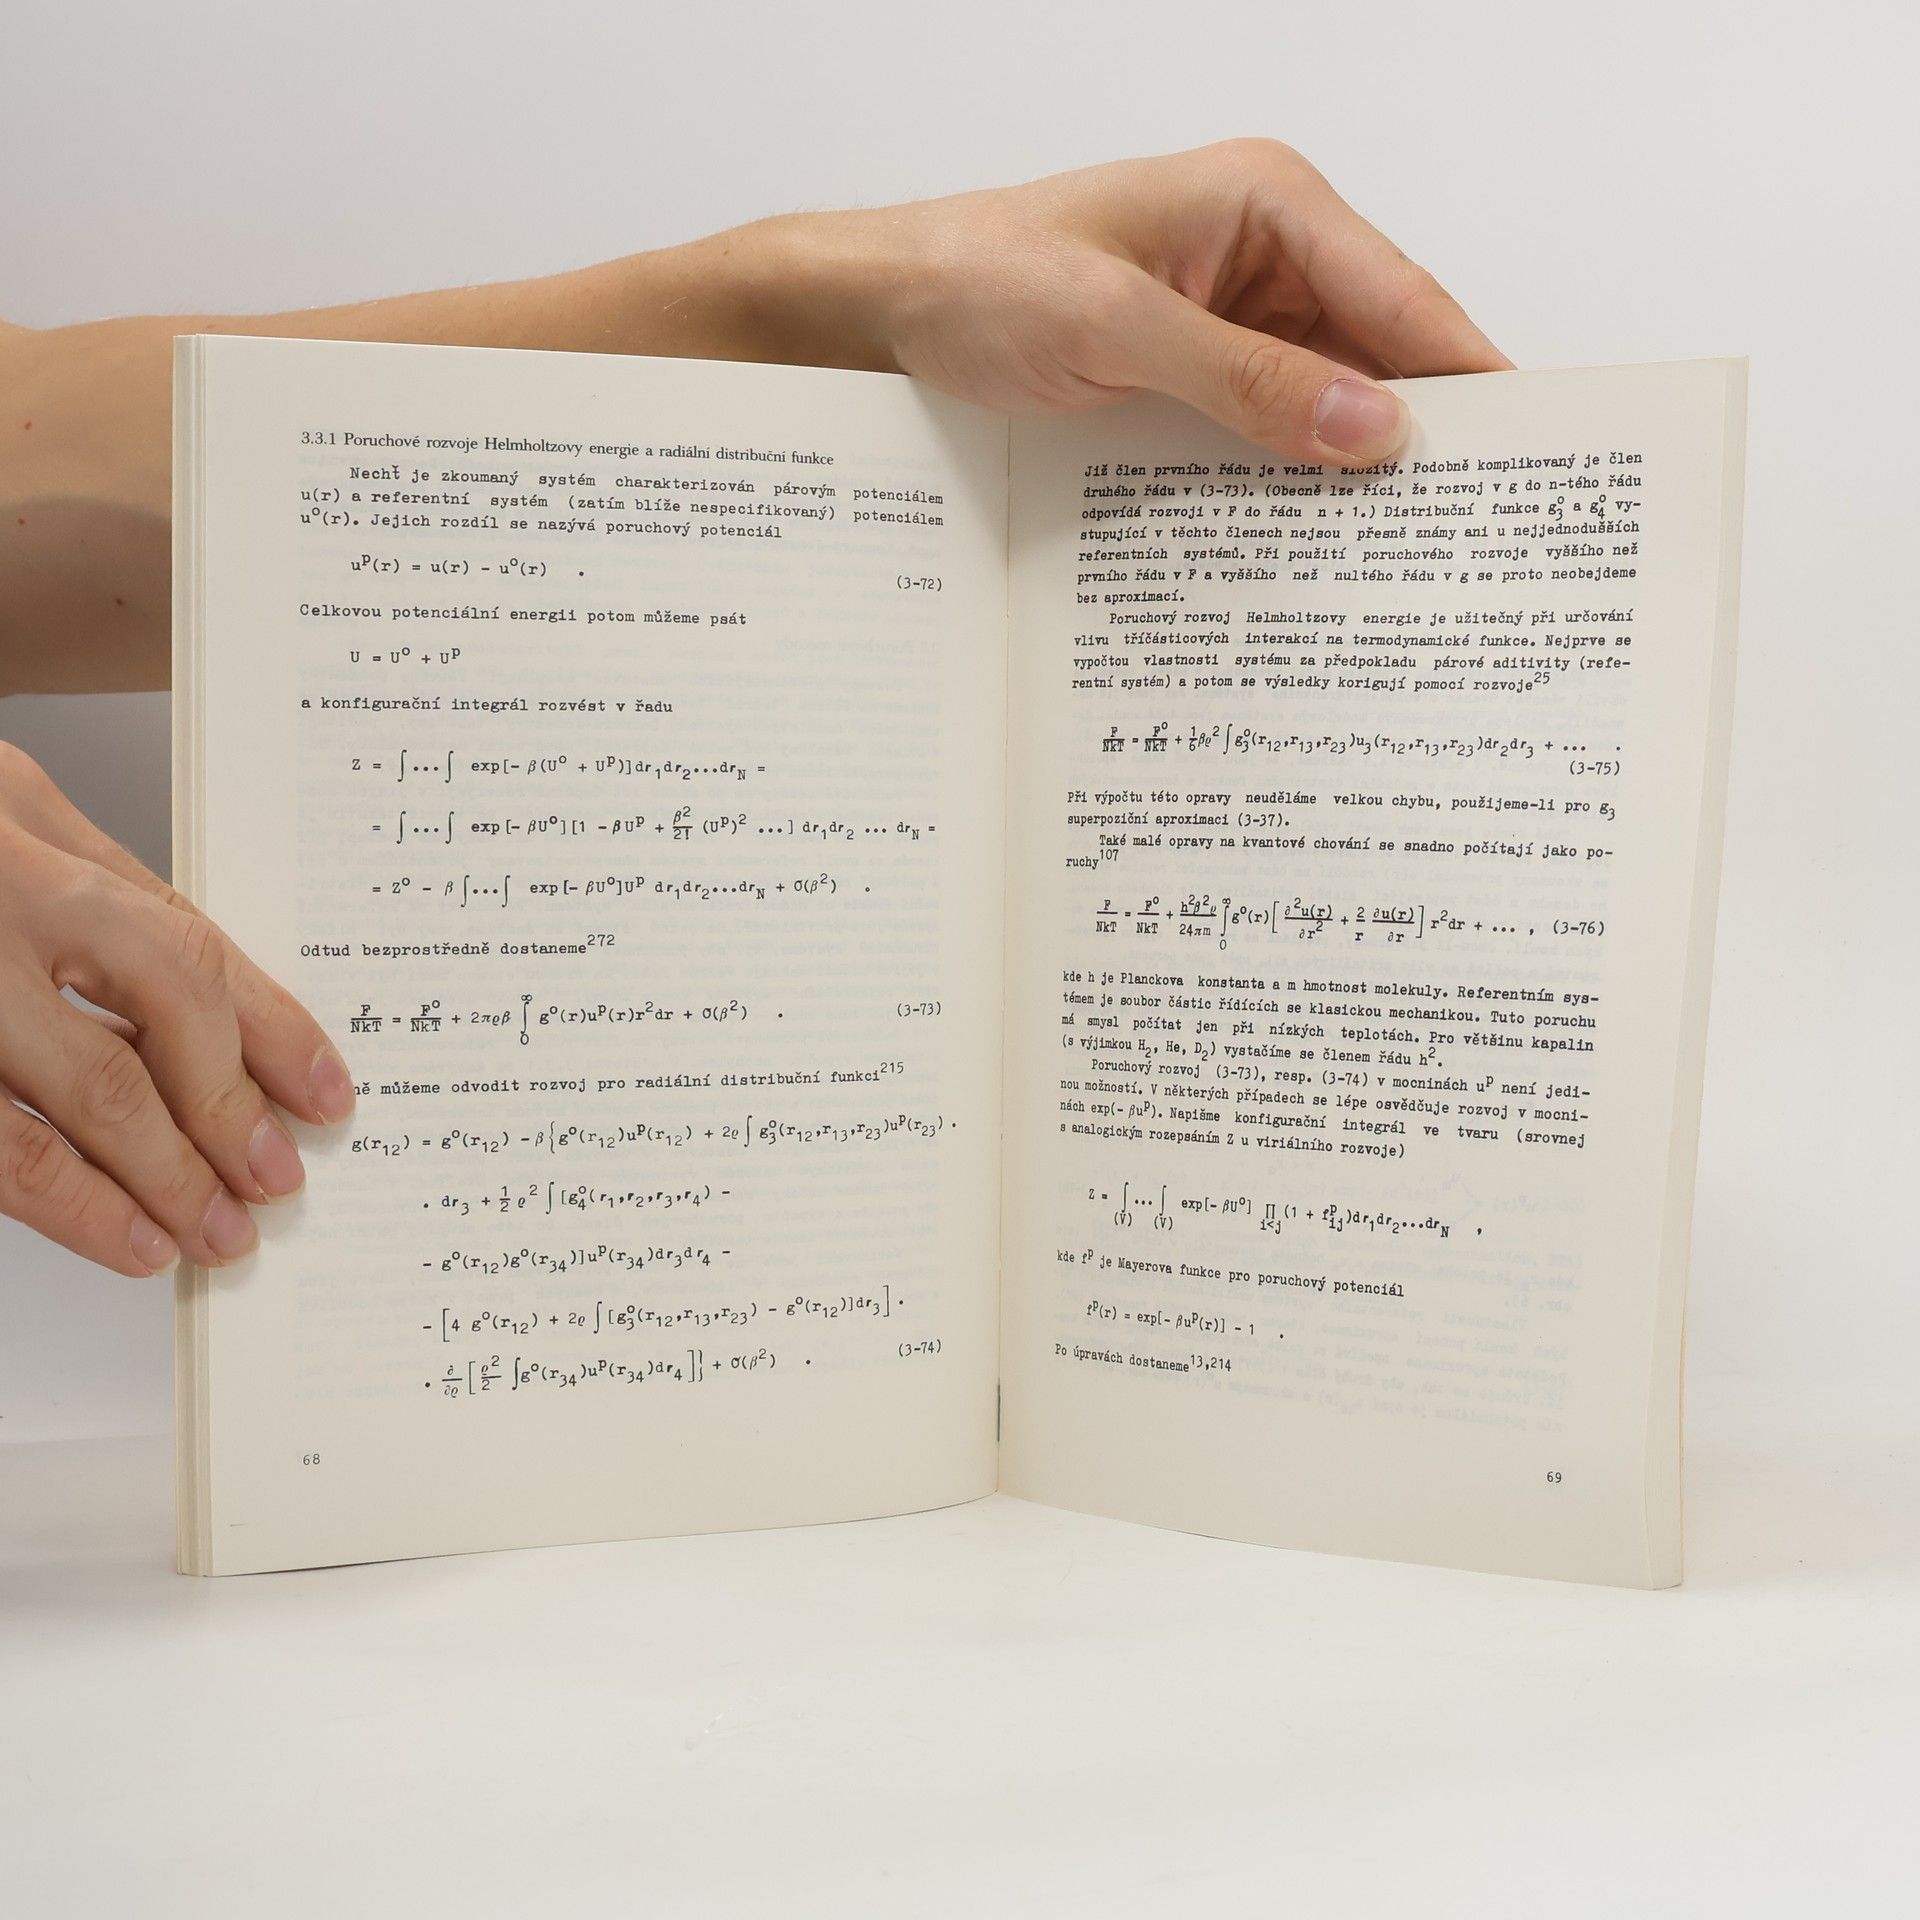 3.3.1 Poruchové rozvoje Helmholtzovy energie a radiální distribuční funkce
Nechť je zkoumaný systém charakterizován párovým potenciálem
u(r) a referentní systém (zatím blíže nespecifikovaný) potenciálem
uᵒ(r). Jejich rozdíl se nazývá poruchový potenciál
uᵖ(r) = u(r) - uᵒ(r) . (3-72)
Celkovou potenciální energii potom můžeme psát
U = Uᵒ + Uᵖ
a konfigurační integrál rozvést v řadu
Z = ∫...∫ exp[- β(Uᵒ + Uᵖ)]dr₁dr₂...dr_N =
= ∫...∫ exp[- βUᵒ][1 - βUᵖ + β²/2! (Uᵖ)² ...] dr₁dr₂ ... dr_N =
= Zᵒ - β ∫...∫ exp[- βUᵒ]Uᵖ dr₁dr₂...dr_N + O(β²) .
Odtud bezprostředně dostaneme²⁷²
F/NkT = Fᵒ/NkT + 2πϱβ ∫₀^∞ gᵒ(r)uᵖ(r)r²dr + O(β²) . (3-73)
ně můžeme odvodit rozvoj pro radiální distribuční funkci²¹⁵
g(r₁₂) = gᵒ(r₁₂) - β{gᵒ(r₁₂)uᵖ(r₁₂) + 2ϱ ∫ g₃ᵒ(r₁₂,r₁₃,r₂₃)uᵖ(r₂₃) .
. dr₃ + 1/2 ϱ² ∫ [g₄ᵒ(r₁,r₂,r₃,r₄) -
- gᵒ(r₁₂)gᵒ(r₃₄)]uᵖ(r₃₄)dr₃dr₄ -
- [4 gᵒ(r₁₂) + 2ϱ ∫ [g₃ᵒ(r₁₂,r₁₃,r₂₃) - gᵒ(r₁₂)]dr₃] .
. ∂/∂ϱ [ϱ²/2 ∫gᵒ(r₃₄)uᵖ(r₃₄)dr₄]} + O(β²) . (3-74)
68
Již člen prvního řádu je velmi složitý. Podobně komplikovaný je člen
druhého řádu v (3-73). (Obecně lze říci, že rozvoj v g do n-tého řádu
odpovídá rozvoji v F do řádu n + 1.) Distribuční funkce g₃ᵒ a g₄ᵒ vy-
stupující v těchto členech nejsou přesně známy ani u nejjednodušších
referentních systémů. Při použití poruchového rozvoje vyššího než
prvního řádu v F a vyššího než nultého řádu v g se proto neobejdeme
bez aproximací.
Poruchový rozvoj Helmholtzovy energie je užitečný při určování
vlivu tříčásticových interakcí na termodynamické funkce. Nejprve se
vypočtou vlastnosti systému za předpokladu párové aditivity (refe-
rentní systém) a potom se výsledky korigují pomocí rozvoje²⁵
F/NkT = Fᵒ/NkT + 1/6 βϱ² ∫ g₃ᵒ(r₁₂,r₁₃,r₂₃)u₃(r₁₂,r₁₃,r₂₃)dr₂dr₃ + ... .
(3-75)
Při výpočtu této opravy neuděláme velkou chybu, použijeme-li pro g₃
superpoziční aproximaci (3-37).
Také malé opravy na kvantové chování se snadno počítají jako po-
ruchy¹⁰⁷
F/NkT = Fᵒ/NkT + h²β²ϱ/24πm ∫₀^∞ gᵒ(r)[∂²u(r)/∂r² + 2/r ∂u(r)/∂r] r²dr + ... , (3-76)
kde h je Planckova konstanta a m hmotnost molekuly. Referentním sys-
témem je soubor částic řídících se klasickou mechanikou. Tuto poruchu
má smysl počítat jen při nízkých teplotách. Pro většinu kapalin
(s výjimkou H₂, He, D₂) vystačíme se členem řádu h².
Poruchový rozvoj (3-73), resp. (3-74) v mocninách uᵖ není jedi-
nou možností. V některých případech se lépe osvědčuje rozvoj v mocni-
nách exp(- βuᵖ). Napišme konfigurační integrál ve tvaru (srovnej
s analogickým rozepsáním Z u viriálního rozvoje)
Z = ∫(V)...∫(V) exp[- βUᵒ] ∏i<j (1 + fᵖ_ij)dr₁dr₂...dr_N ,
kde fᵖ je Mayerova funkce pro poruchový potenciál
fᵖ(r) = exp[- βuᵖ(r)] - 1 .
Po úpravách dostaneme¹³,²¹⁴
69